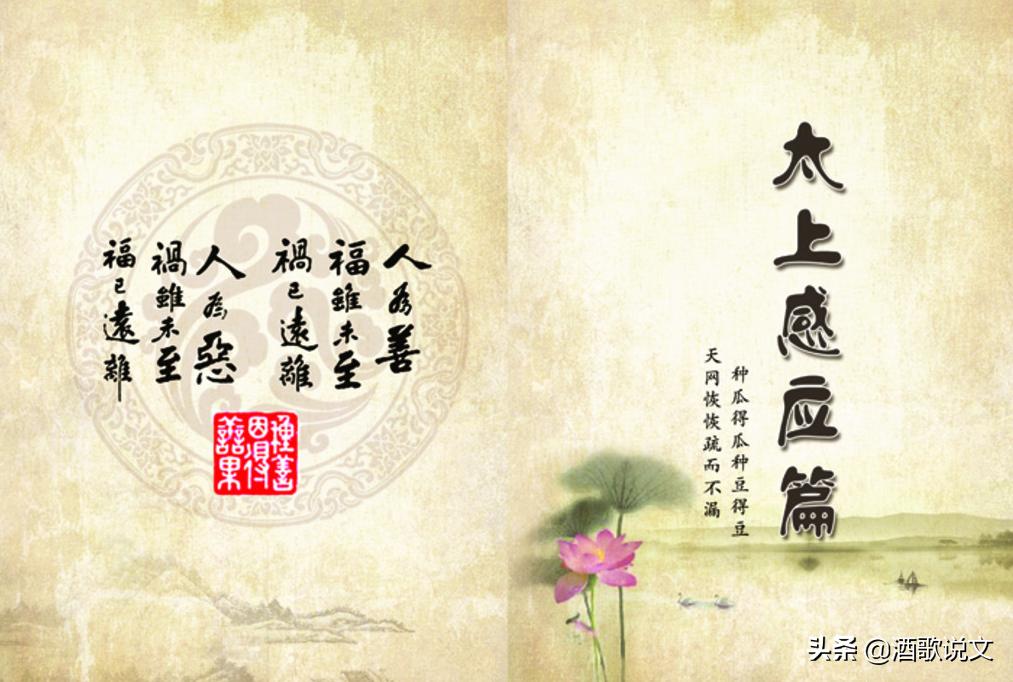 太上感应篇
种瓜得瓜种豆得豆
天网恢恢疏而不漏
人為善
福雖未至
禍已遠離
人為惡
禍雖未至
福已遠離
種善
因得
善果
头条 @酒歌说文